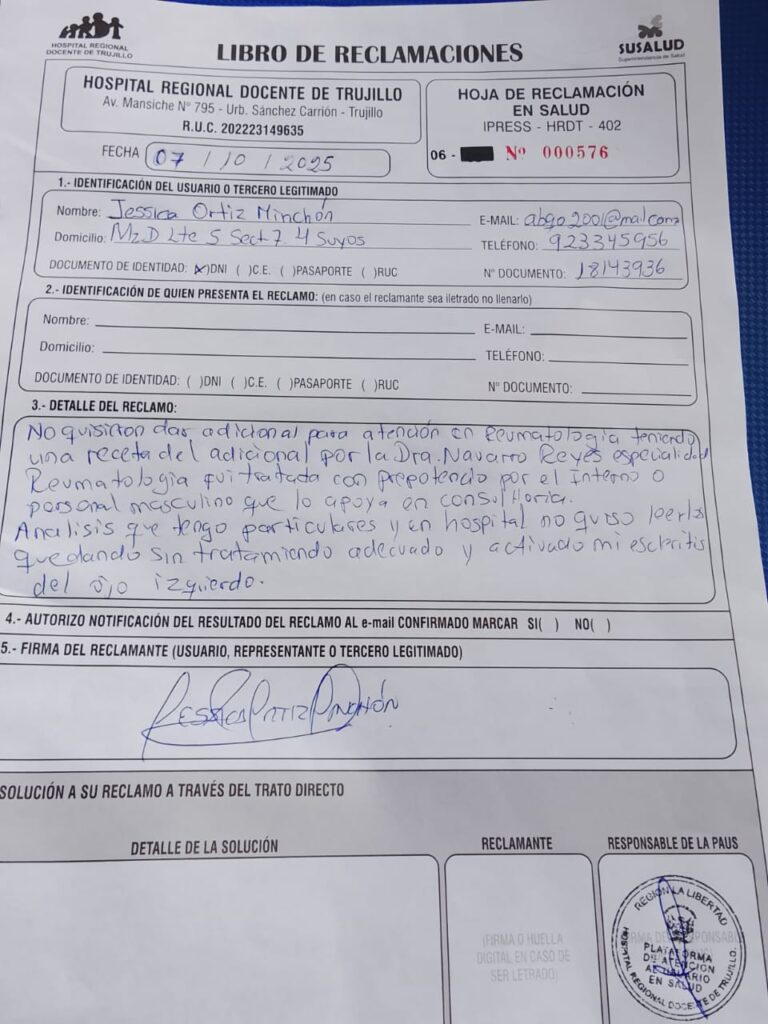 HOSPITAL REGIONAL
DOCENTE DE TRUJILLO
LIBRO DE RECLAMACIONES
SUSALUD
Superintendencia de Salud
HOSPITAL REGIONAL DOCENTE DE TRUJILLO
Av. Mansiche Nº 795 - Urb. Sánchez Carrión - Trujillo
R.U.C. 202223149635
HOJA DE RECLAMACIÓN
EN SALUD
IPRESS - HRDT - 402
FECHA 07 / 10 / 2025
06 - Nº 000576
1.- IDENTIFICACIÓN DEL USUARIO O TERCERO LEGITIMADO
Nombre: Jessica Ortiz Minchón E-MAIL:
Domicilio: Mz D Lte 5 Sect 7 4 Suyos TELÉFONO: 923345956
DOCUMENTO DE IDENTIDAD: (x)DNI ( )C.E. ( )PASAPORTE ( )RUC Nº DOCUMENTO: 18143936
2.- IDENTIFICACIÓN DE QUIEN PRESENTA EL RECLAMO: (en caso el reclamante sea iletrado no llenarlo)
Nombre: E-MAIL:
Domicilio: TELÉFONO:
DOCUMENTO DE IDENTIDAD: ( )DNI ( )C.E. ( )PASAPORTE ( )RUC Nº DOCUMENTO:
3.- DETALLE DEL RECLAMO:
No quisieron dar adicional para atención en Reumatología teniendo
una receta del adicional por la Dra. Navarro Reyes especialidad
Reumatología fui tratada con prepotencia por el Interno o
personal masculino que lo apoya en consultoria.
Analisis que tengo particulares y en hospital no quiso leerlos
quedando sin tratamiendo adecuado y activado mi escleritis
del ojo izquierdo.
4.- AUTORIZO NOTIFICACIÓN DEL RESULTADO DEL RECLAMO AL e-mail CONFIRMADO MARCAR SI( ) NO( )
5.- FIRMA DEL RECLAMANTE (USUARIO, REPRESENTANTE O TERCERO LEGITIMADO)
SOLUCIÓN A SU RECLAMO A TRAVÉS DEL TRATO DIRECTO
DETALLE DE LA SOLUCIÓN RECLAMANTE RESPONSABLE DE LA PAUS
(FIRMA O HUELLA
DIGITAL EN CASO DE
SER LETRADO)
REGIÓN LA LIBERTAD
PLATAFORMA
DE ATENCION
AL USUARIO
EN SALUD
HOSPITAL REGIONAL DOCENTE DE TRUJILLO